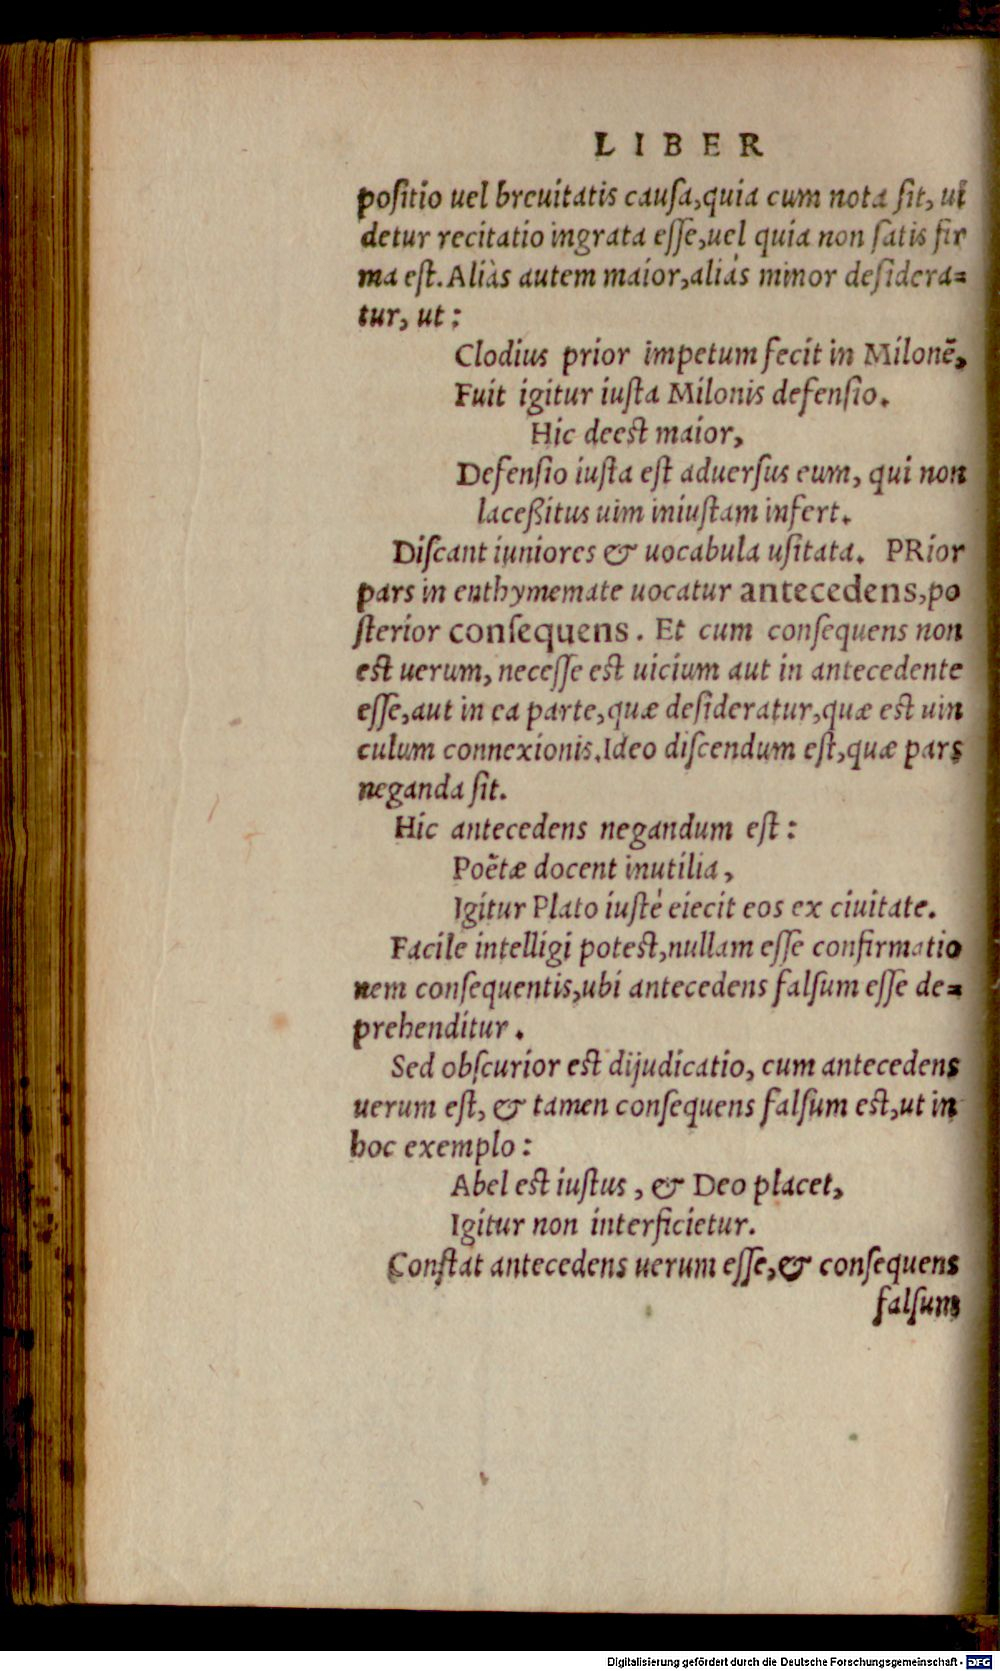 LIBER
positio uel breuitatis causa,quia cum nota sit, ui
detur recitatio ingrata esse,uel quia non satis fir
ma est.Aliàs autem maior,aliàs minor desidera=
tur, ut:
Clodius prior impetum fecit in Milonē,
Fuit igitur iusta Milonis defensio.
Hic deest maior,
Defensio iusta est aduersus eum, qui non
laceßitus uim iniustam infert.
Discant iuniores & uocabula usitata. PRior
pars in enthymemate uocatur antecedens,po
sterior consequens. Et cum consequens non
est uerum, necesse est uicium aut in antecedente
esse,aut in ea parte,quæ desideratur,quæ est uin
culum connexionis.Ideo discendum est,quæ pars
neganda sit.
Hic antecedens negandum est:
Poëtæ docent inutilia,
Igitur Plato iustè eiecit eos ex ciuitate.
Facile intelligi potest,nullam esse confirmatio
nem consequentis,ubi antecedens falsum esse de=
prehenditur.
Sed obscurior est dijudicatio, cum antecedens
uerum est, & tamen consequens falsum est,ut in
hoc exemplo:
Abel est iustus, & Deo placet,
Igitur non interficietur.
Constat antecedens uerum esse,& consequens
falsum
Digitalisierung gefördert durch die Deutsche Forschungsgemeinschaft - DFG